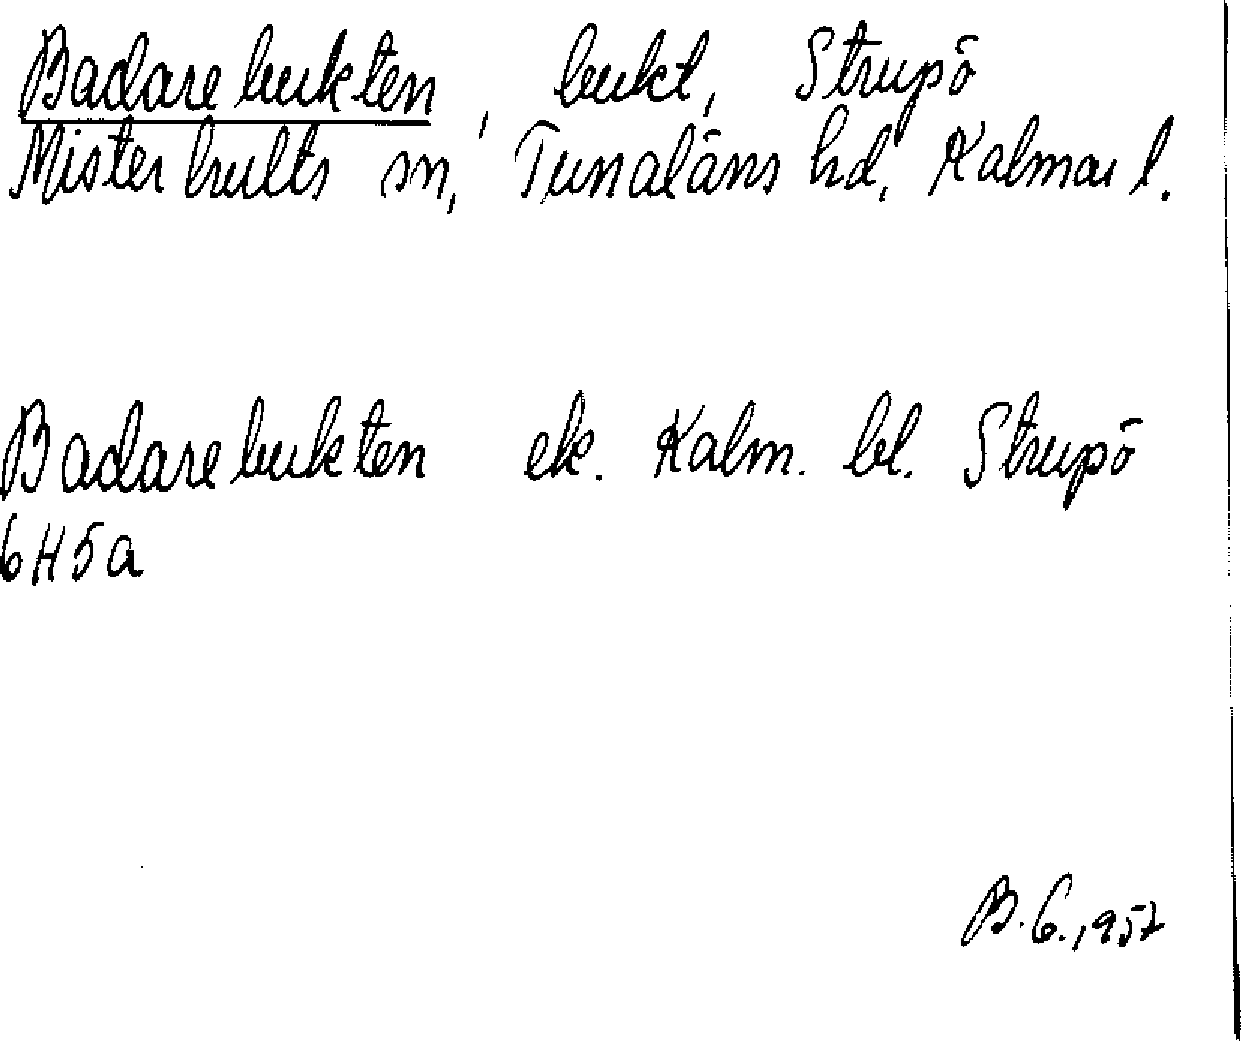 Badarebukten, bukt, Strupö
Misterhults sn, Tunaläns hd, Kalmar l.
Badarebukten ek. Kalm. bl. Strupö
6H5a
B.G., 1957